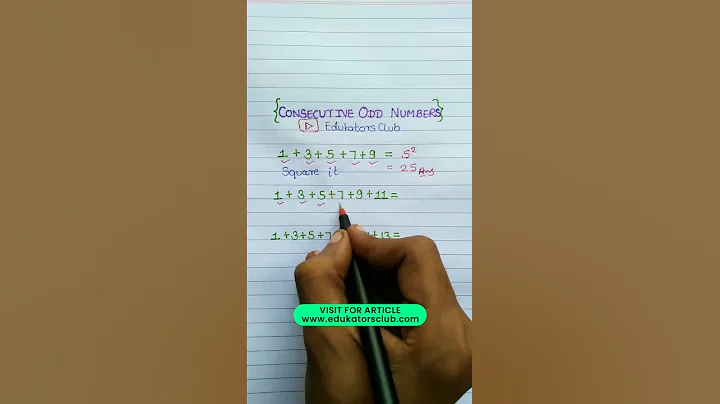 {CONSECUTIVE ODD NUMBERS}
Edukators Club
1 + 3 + 5 + 7 + 9 = 5²
Square it = 25 Ans
1 + 3 + 5 + 7 + 9 + 11 =
1 + 3 + 5 + 7 + 13 =
VISIT FOR ARTICLE
www.edukatorsclub.com